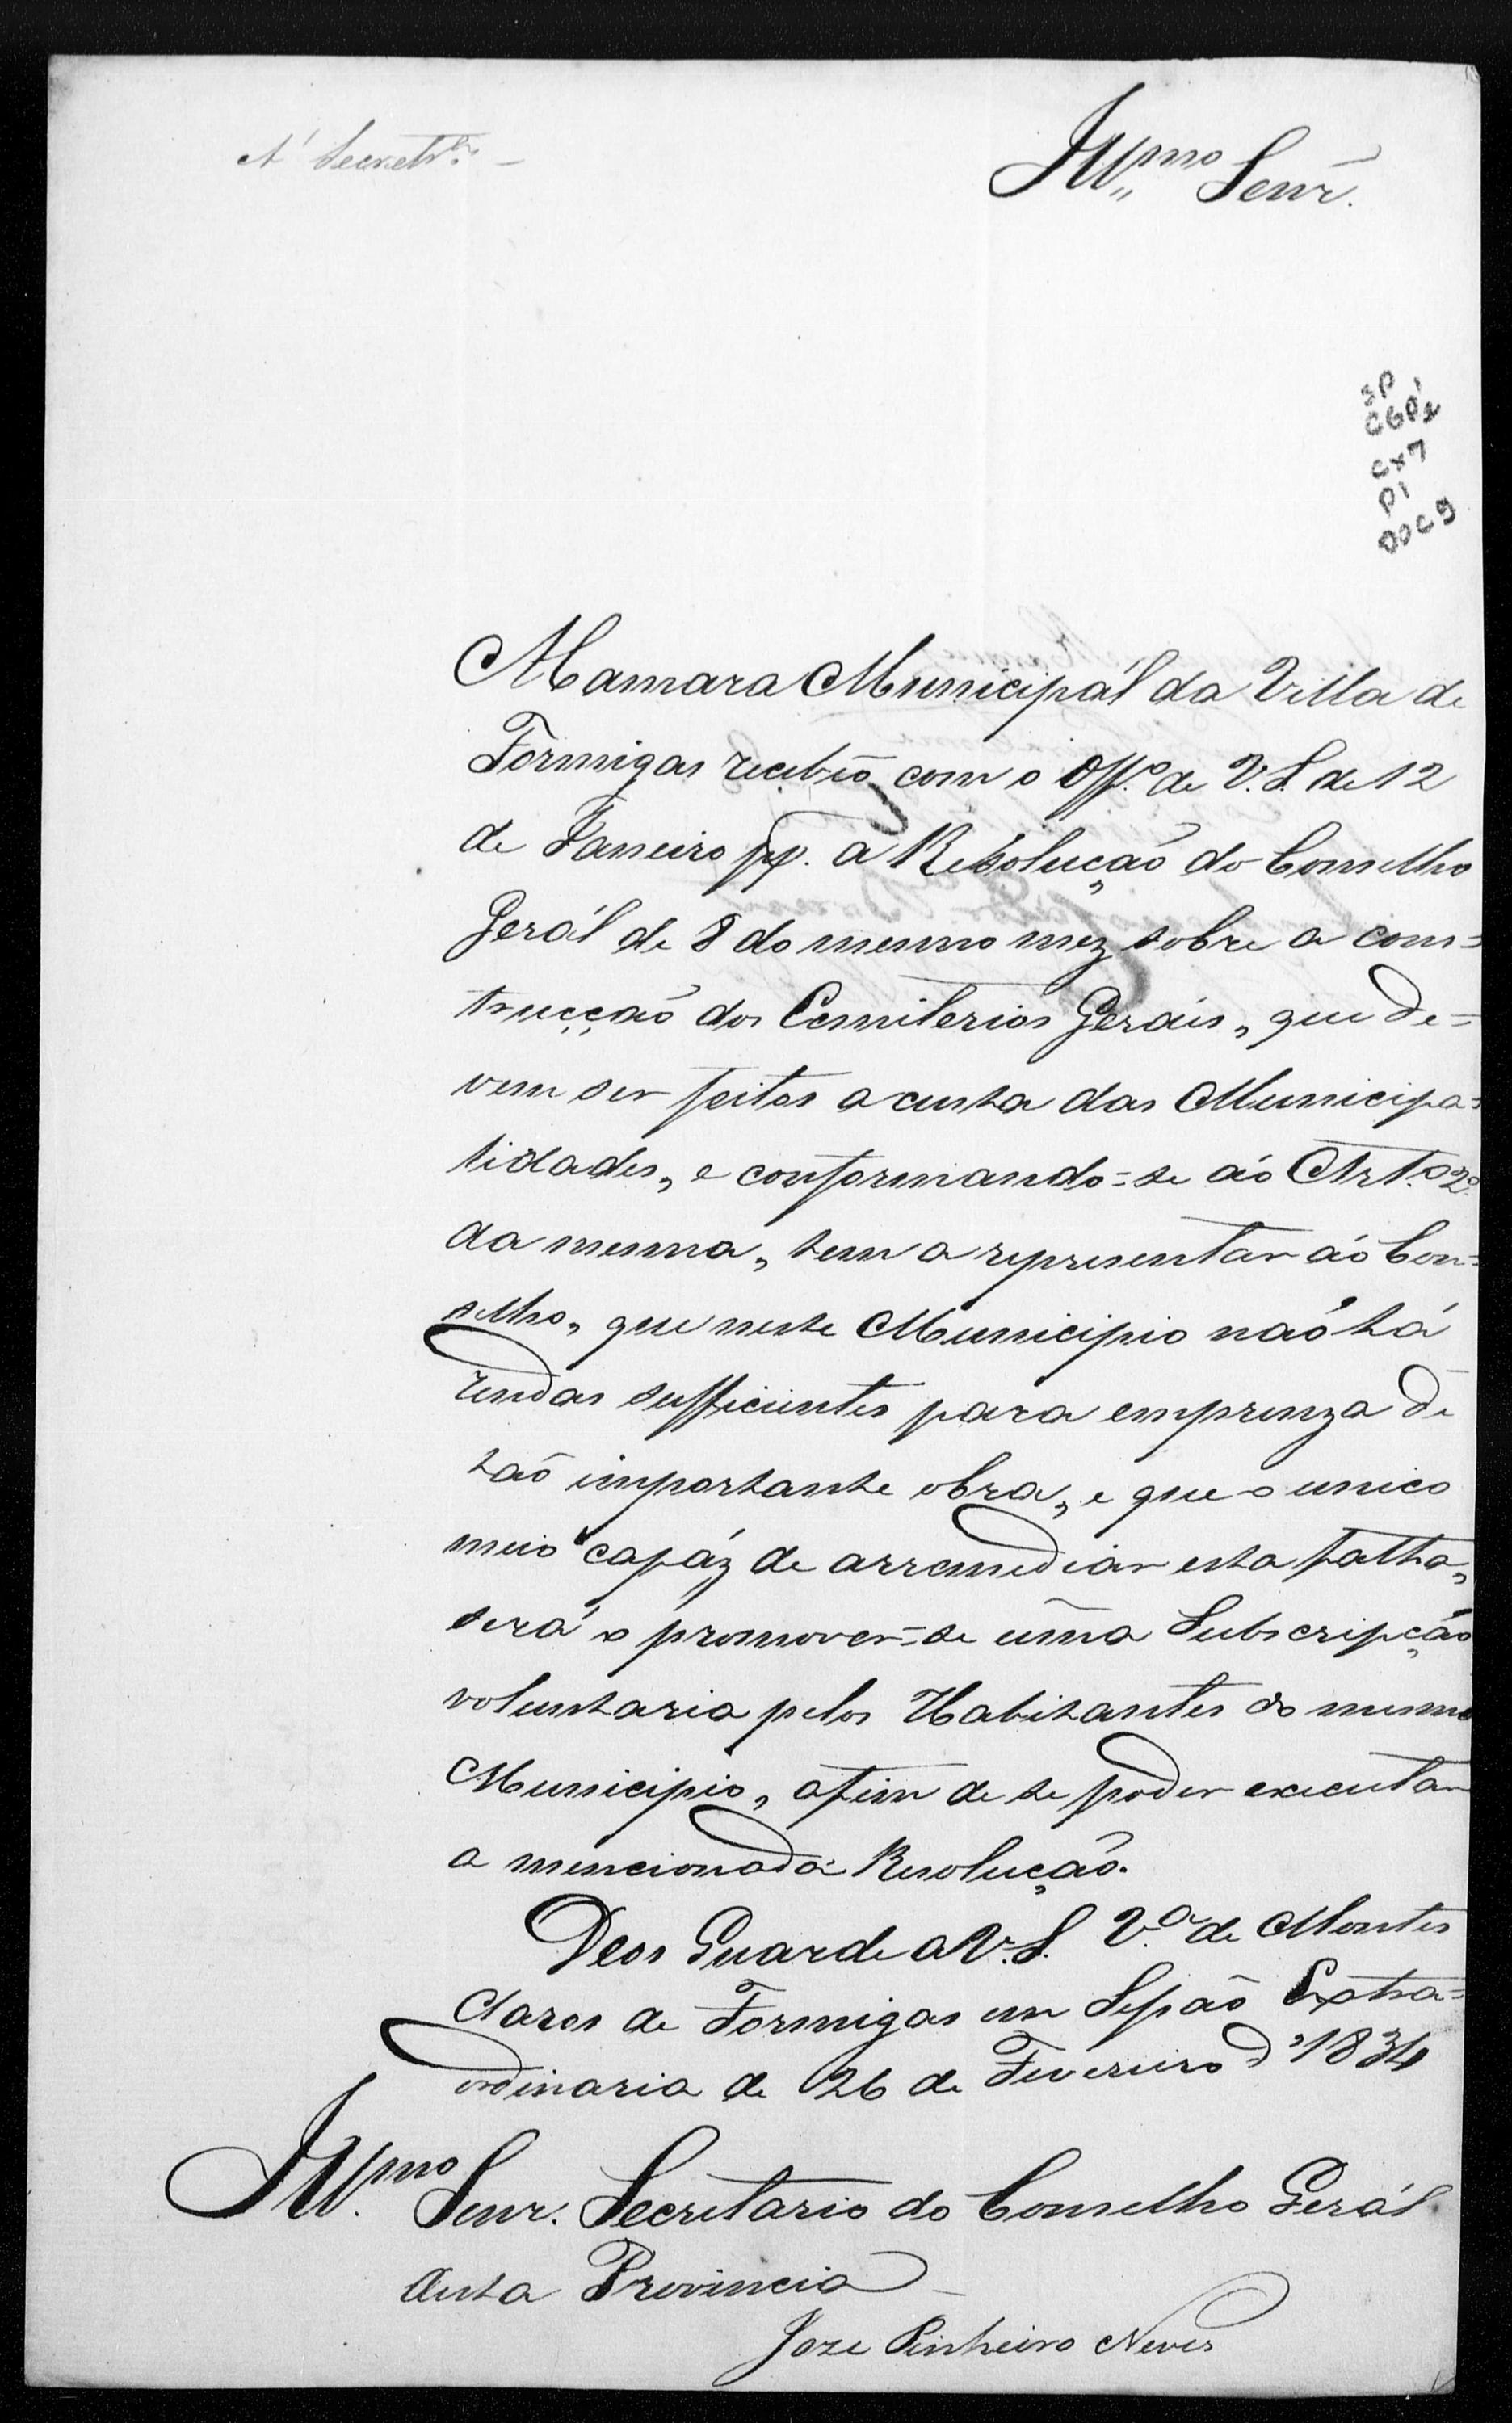 A' Secretr.ª
Ill.mo Senr.
SP
CGP¹2
CX7
P1
DOC9
A Camara Municipál da Villa de
Formigas recebêo com o Off.º de V.S. de 12
de Janeiro pp. a Resolução do Conselho
Gerál de 8 do mesmo mez sobre a cons=
trucção dos Cemiterios Geráis, que de=
vem ser feitos a custa das Municipa=
lidades, e conformando=se áo Art.º 2º
da mesma, tem a representar áo Con=
selho, que neste Municipio naõ há
rendas sufficientes para emprenza de
taõ importante obra, e que o unico
meio capáz de arremediar esta falta,
será o promover=se uma Subscripçáo
voluntaria pelos Habitantes do mesmo
Municipio, afim de se poder executar
a mencionada Resoluçáo.
Deos Guarde a V.S. V.ª de Montes
Claros de Formigas em Sessaõ Extra=
ordinaria de 26 de Fevereiro d'1834
Ill.mo Senr. Secretario do Conselho Gerál
desta Provincia
Joze Pinheiro Neves